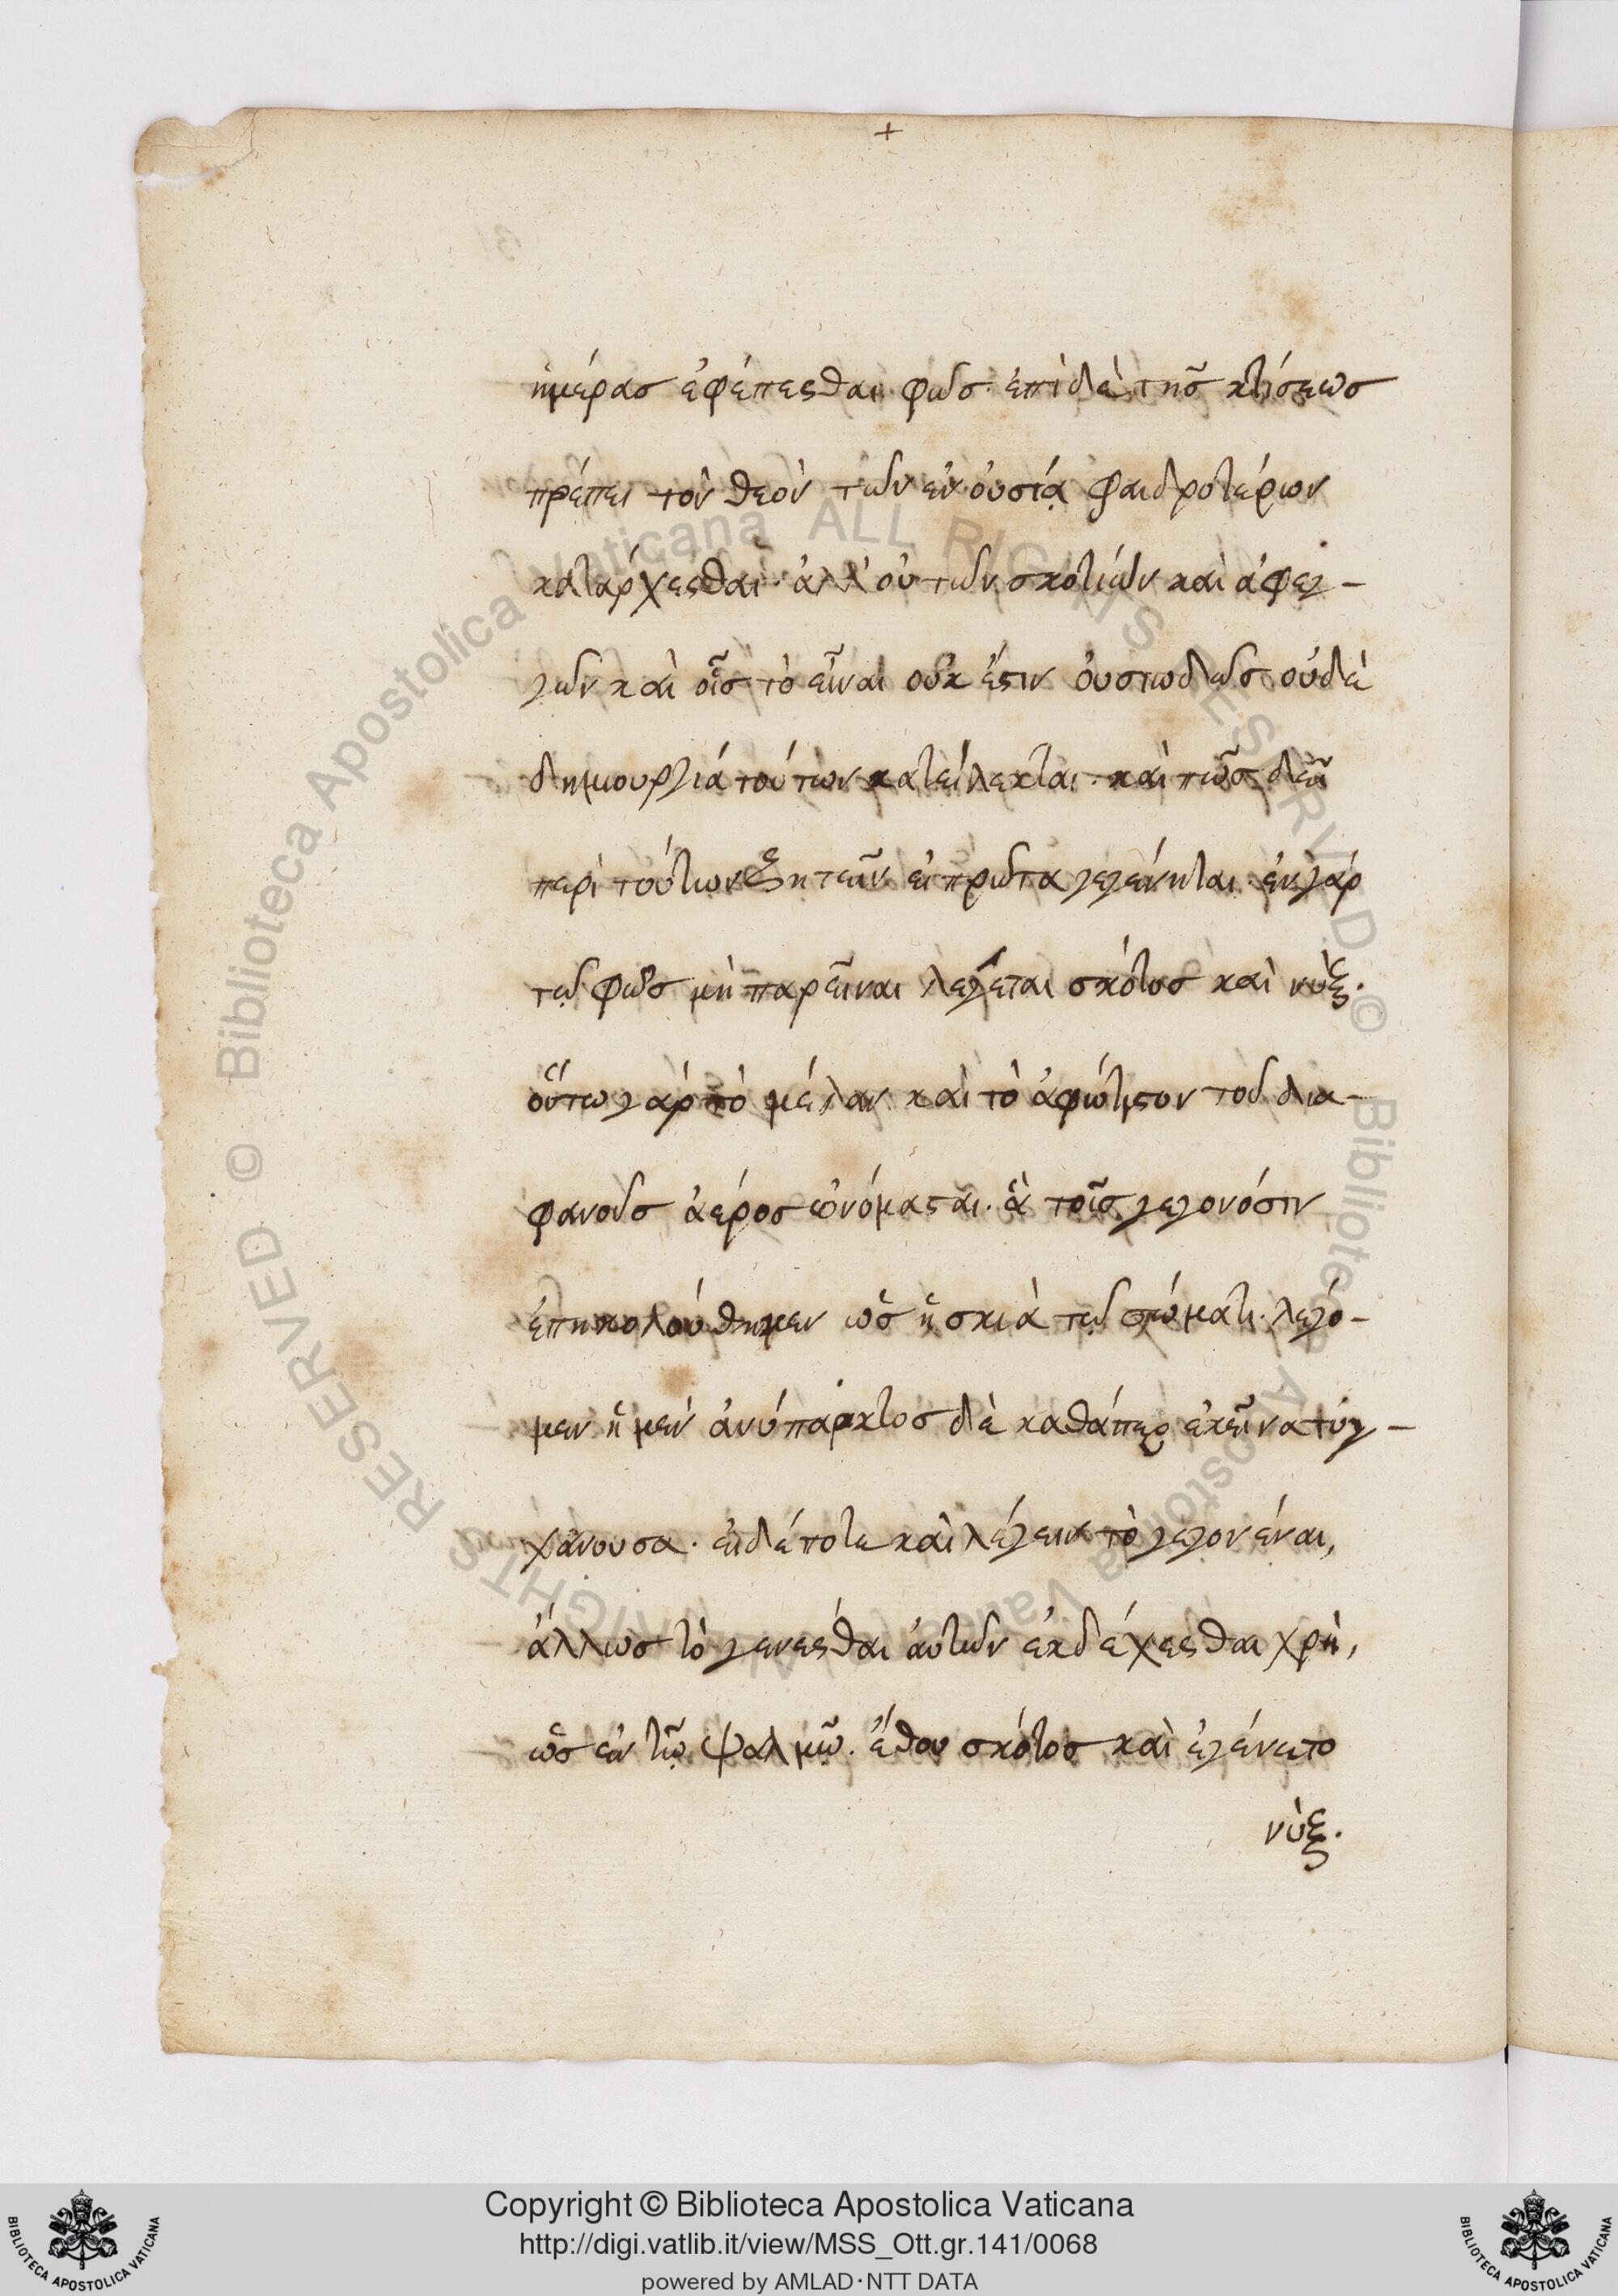 +
ἡμέρας ἐφέπεσθαι φῶς· ἐπὶ δὲ τῆς κτίσεως
πρέπει τὸν θεὸν τῶν ἐν οὐσίᾳ φαιδροτέρων
κατάρχεσθαι· ἀλλ' οὐ τῶν σκοτιῶν καὶ ἀφεγ-
γῶν καὶ οἷς τὸ εἶναι οὐκ ἔστιν οὐσιωδῶς οὐδὲ
δημιουργιὰ τούτων κατείλεκται· καὶ πῶς δεῖ
περὶ τούτων ζητεῖν εἰ πρῶτα γεγένηται· ἐν γὰρ
τῷ φῶς μὴ παρεῖναι λέγεται σκότος καὶ νὺξ·
οὕτω γὰρ τὸ μέλαν καὶ τὸ ἀφώτιστον τοῦ δια-
φανοῦς ἀέρος ὠνόμασται· ἃ τοῖς γεγονόσιν
ἐπηκολούθημεν ὡς ἡ σκιὰ τῷ σώματι· λεγό-
μεν ἡ μὲν ἀνύπαρκτος δὲ καθάπερ ἐκεῖνα τυγ-
χάνουσα· εἰ δέ ποτε καὶ λέγειν τὸ γεγονέναι,
ἄλλως τὸ γενέσθαι αὐτῶν ἐκδέχεσθαι χρὴ,
ὡς ἐν τῷ ψαλμῷ· ἔθου σκότος καὶ ἐγένετο
νὺξ·
Copyright © Biblioteca Apostolica Vaticana
http://digi.vatlib.it/view/MSS_Ott.gr.141/0068
powered by AMLAD·NTT DATA
BIBLIOTECA APOSTOLICA VATICANA
BIBLIOTECA APOSTOLICA VATICANA
© Biblioteca Apostolica Vaticana ALL RIGHTS RESERVED © Biblioteca Apostolica Vaticana ALL RIGHTS RESERVED